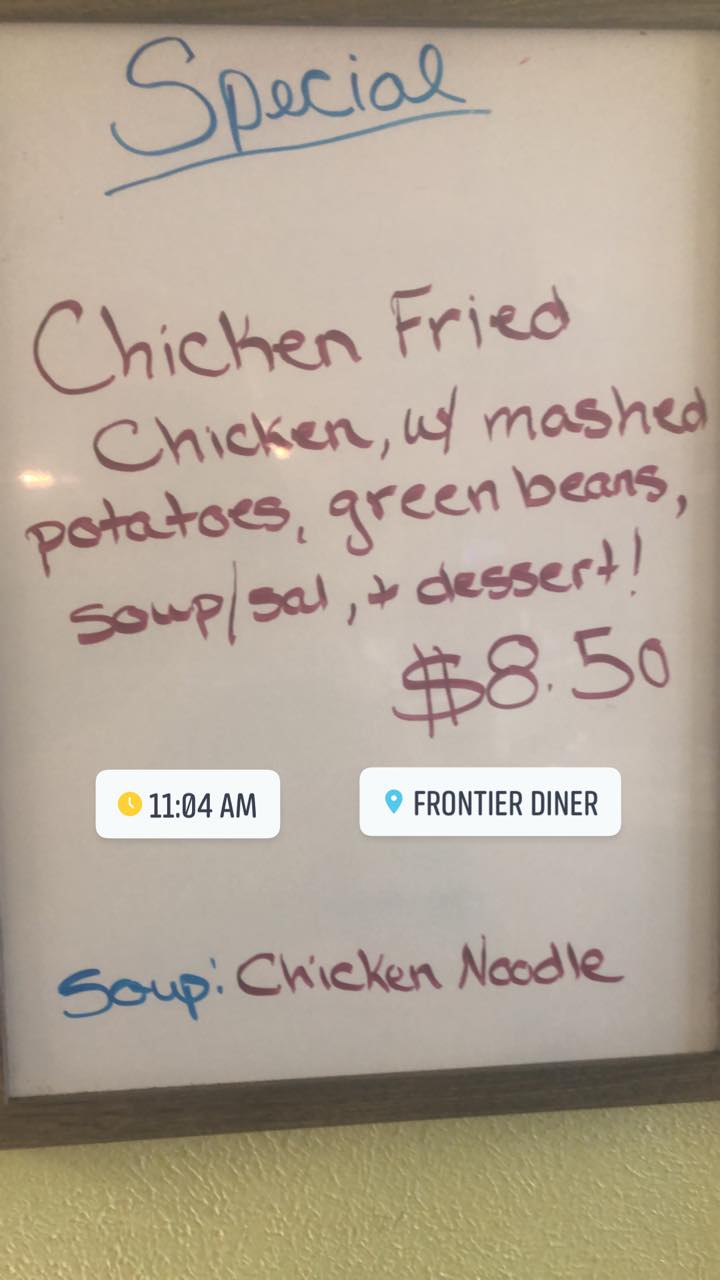 Special
Chicken Fried
Chicken, w/ mashed
potatoes, green beans,
soup/sal, + dessert!
$8.50
11:04 AM
FRONTIER DINER
Soup: Chicken Noodle